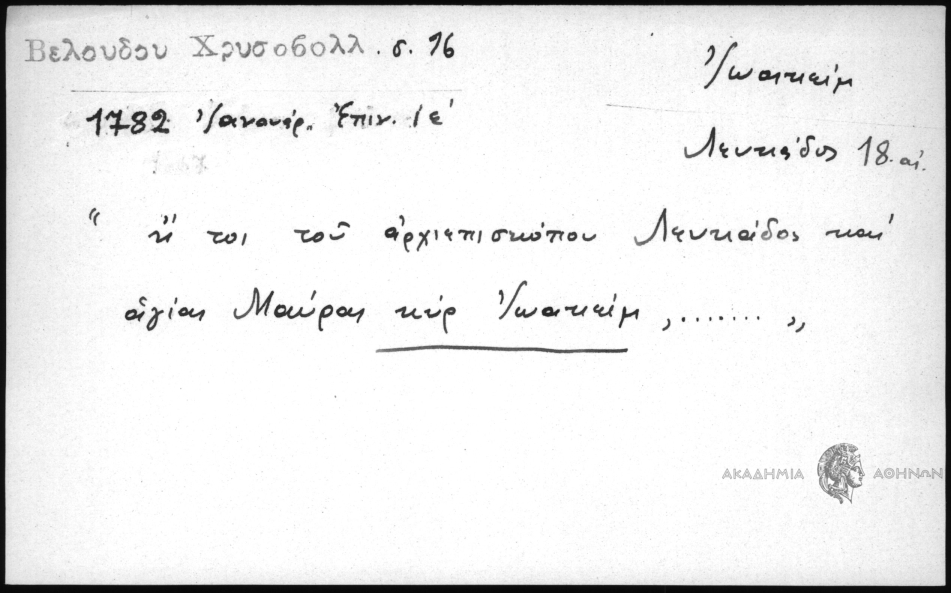 Βελουδου Χρυσοβολλ. σ. 16
Ἰωακεὶμ
1782 Ἰανουάρ. Ἐπιν. ιε΄
Λευκάδος 18. αἰ.
“ κ τοι τοῦ ἀρχιεπισκόπου Λευκάδος καὶ
ἁγίας Μαύρας κὺρ Ἰωακεὶμ , ....... „
ΑΚΑΔΗΜΙΑ ΑΘΗΝΩΝ